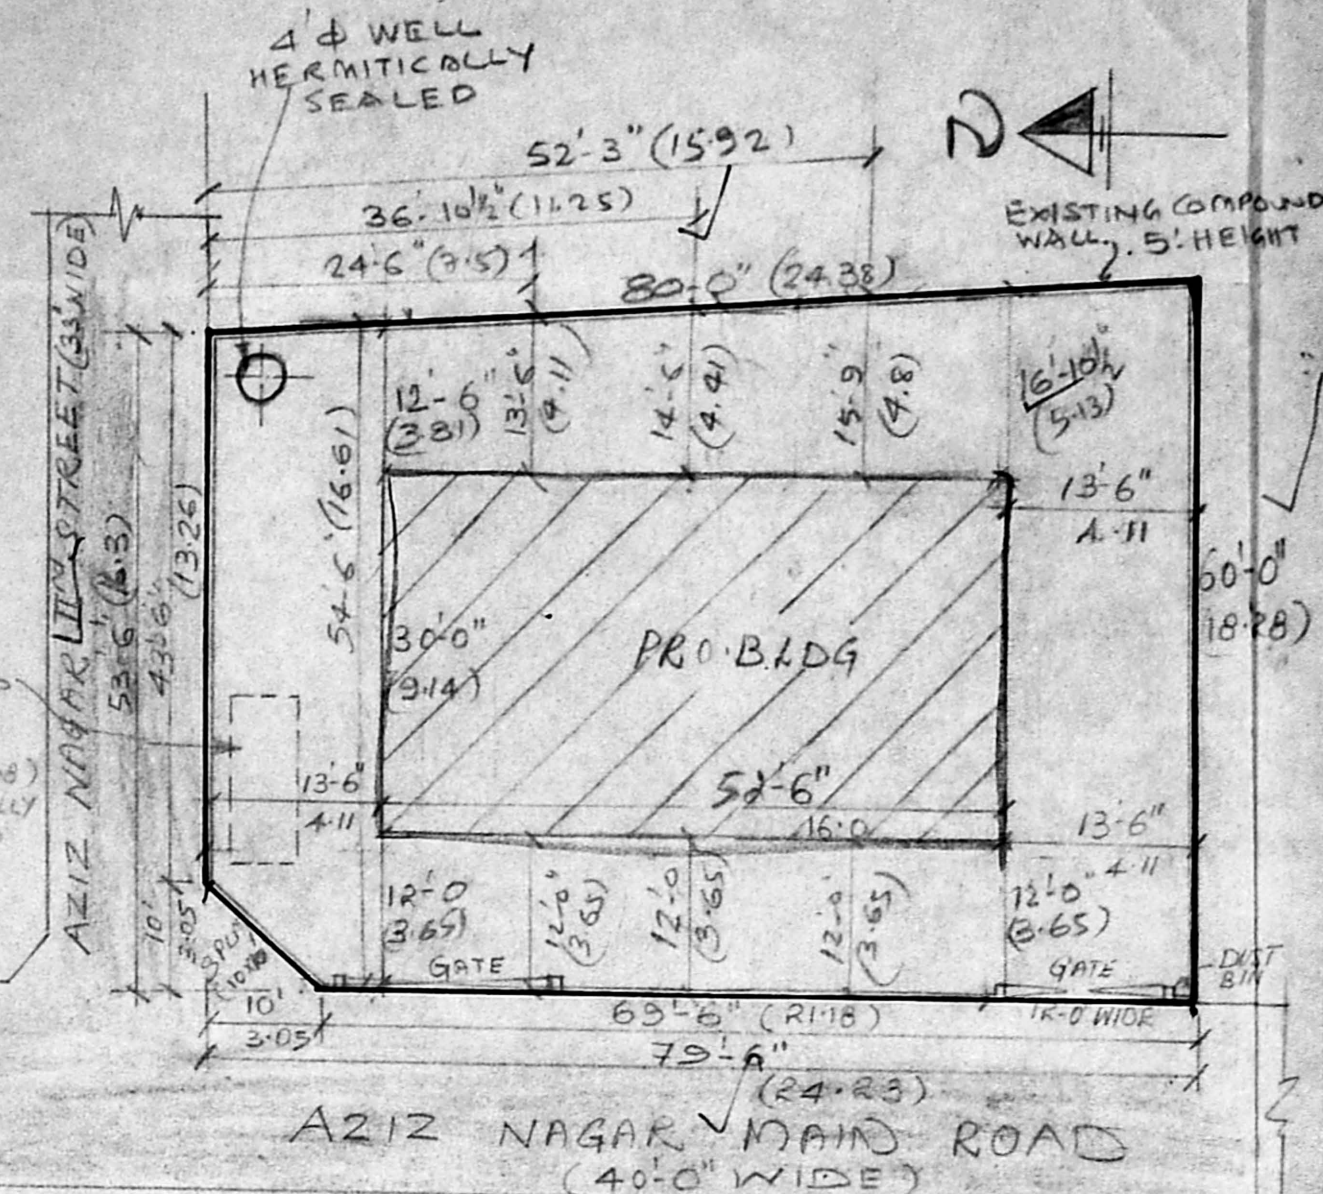 4'Φ WELL
HERMITICALLY
SEALED
52'-3" (15.92)
36'-10½" (11.25)
24'-6" (7.5)
80'-0" (24.38)
EXISTING COMPOUND
WALL, 5' HEIGHT
AZIZ NAGAR IIND STREET (33' WIDE)
53'-6" (16.3)
43'-6"
(13.26)
10'
3.05
54'-6" (16.61)
12'-6"
(3.81)
13'-6"
(4.11)
14'-6"
(4.41)
15'-9"
(4.8)
16'-10½"
(5.13)
13'-6"
4.11
60'-0"
18.28)
30'-0"
(9.14)
PRO.BLDG
13'-6"
4.11
52'-6"
16.0
13'-6"
4.11
12'-0
(3.65)
12'-0"
(3.65)
12'-0
(3.65)
12'-0
(3.65)
12'-0"
(3.65)
SPLAY
(10'X10')
GATE
GATE
12'-0 WIDE
DUST
BIN
10'
3.05
69'-6" (21.18)
79'-6"
(24.23)
AZIZ NAGAR MAIN ROAD
(40'-0" WIDE)